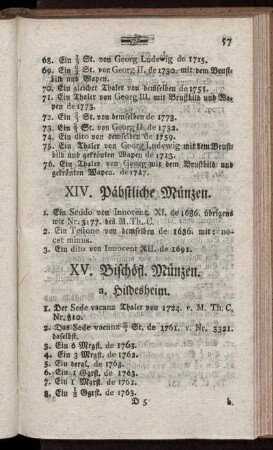 57
68. Ein ⅔ St. von Georg Ludewig de 1715.
69. Ein ⅔ St. von Georg II. de 1730. mit dem Brust-
bild und Wapen.
70. Ein gleicher Thaler von demselben de 1751.
71. Ein Thaler von Georg III. mit Brustbild und Wa-
pen de 1773.
72. Ein ⅔ St. von demselben de 1773.
73. Ein St. von Georg II. de 1732.
74. Ein dito von demselben de 1759.
75. Ein Thaler von Georg Ludewig mit dem Brustbild
und gekrönten Wapen de 1713.
76. Ein Thaler von Georg mit dem Brustbild und
gekrönten Wapen. de 1727.
XIV. Päbstliche Münzen.
1. Ein Scudo von Innocent. XI. de 1686. übrigens
wie Nr. 3177. des M. Th. C.
2. Ein Testone von demselben de 1686. mit: no-
cet minus.
3. Ein dito von Innocent XII. de 1691.
XV. Bischöfl. Münzen.
a. Hildesheim.
1. Der Sede vacanz Thaler von 1724. v. M. Th. C.
Nr. 810.
2. Das Sede vacanz ⅔ St. de 1761. v. Nr. 3321.
daselbst.
3. Ein 6 Mrgst. de 1763.
4. Ein 3 Mrgst. de 1762.
5. Ein deral. de 1763.
6. Ein 1 Ggrst. de 1763.
7. Ein 1 Marst. de 1762.
8. Ein ½ Ggrst. de 1763.
D 5 b.